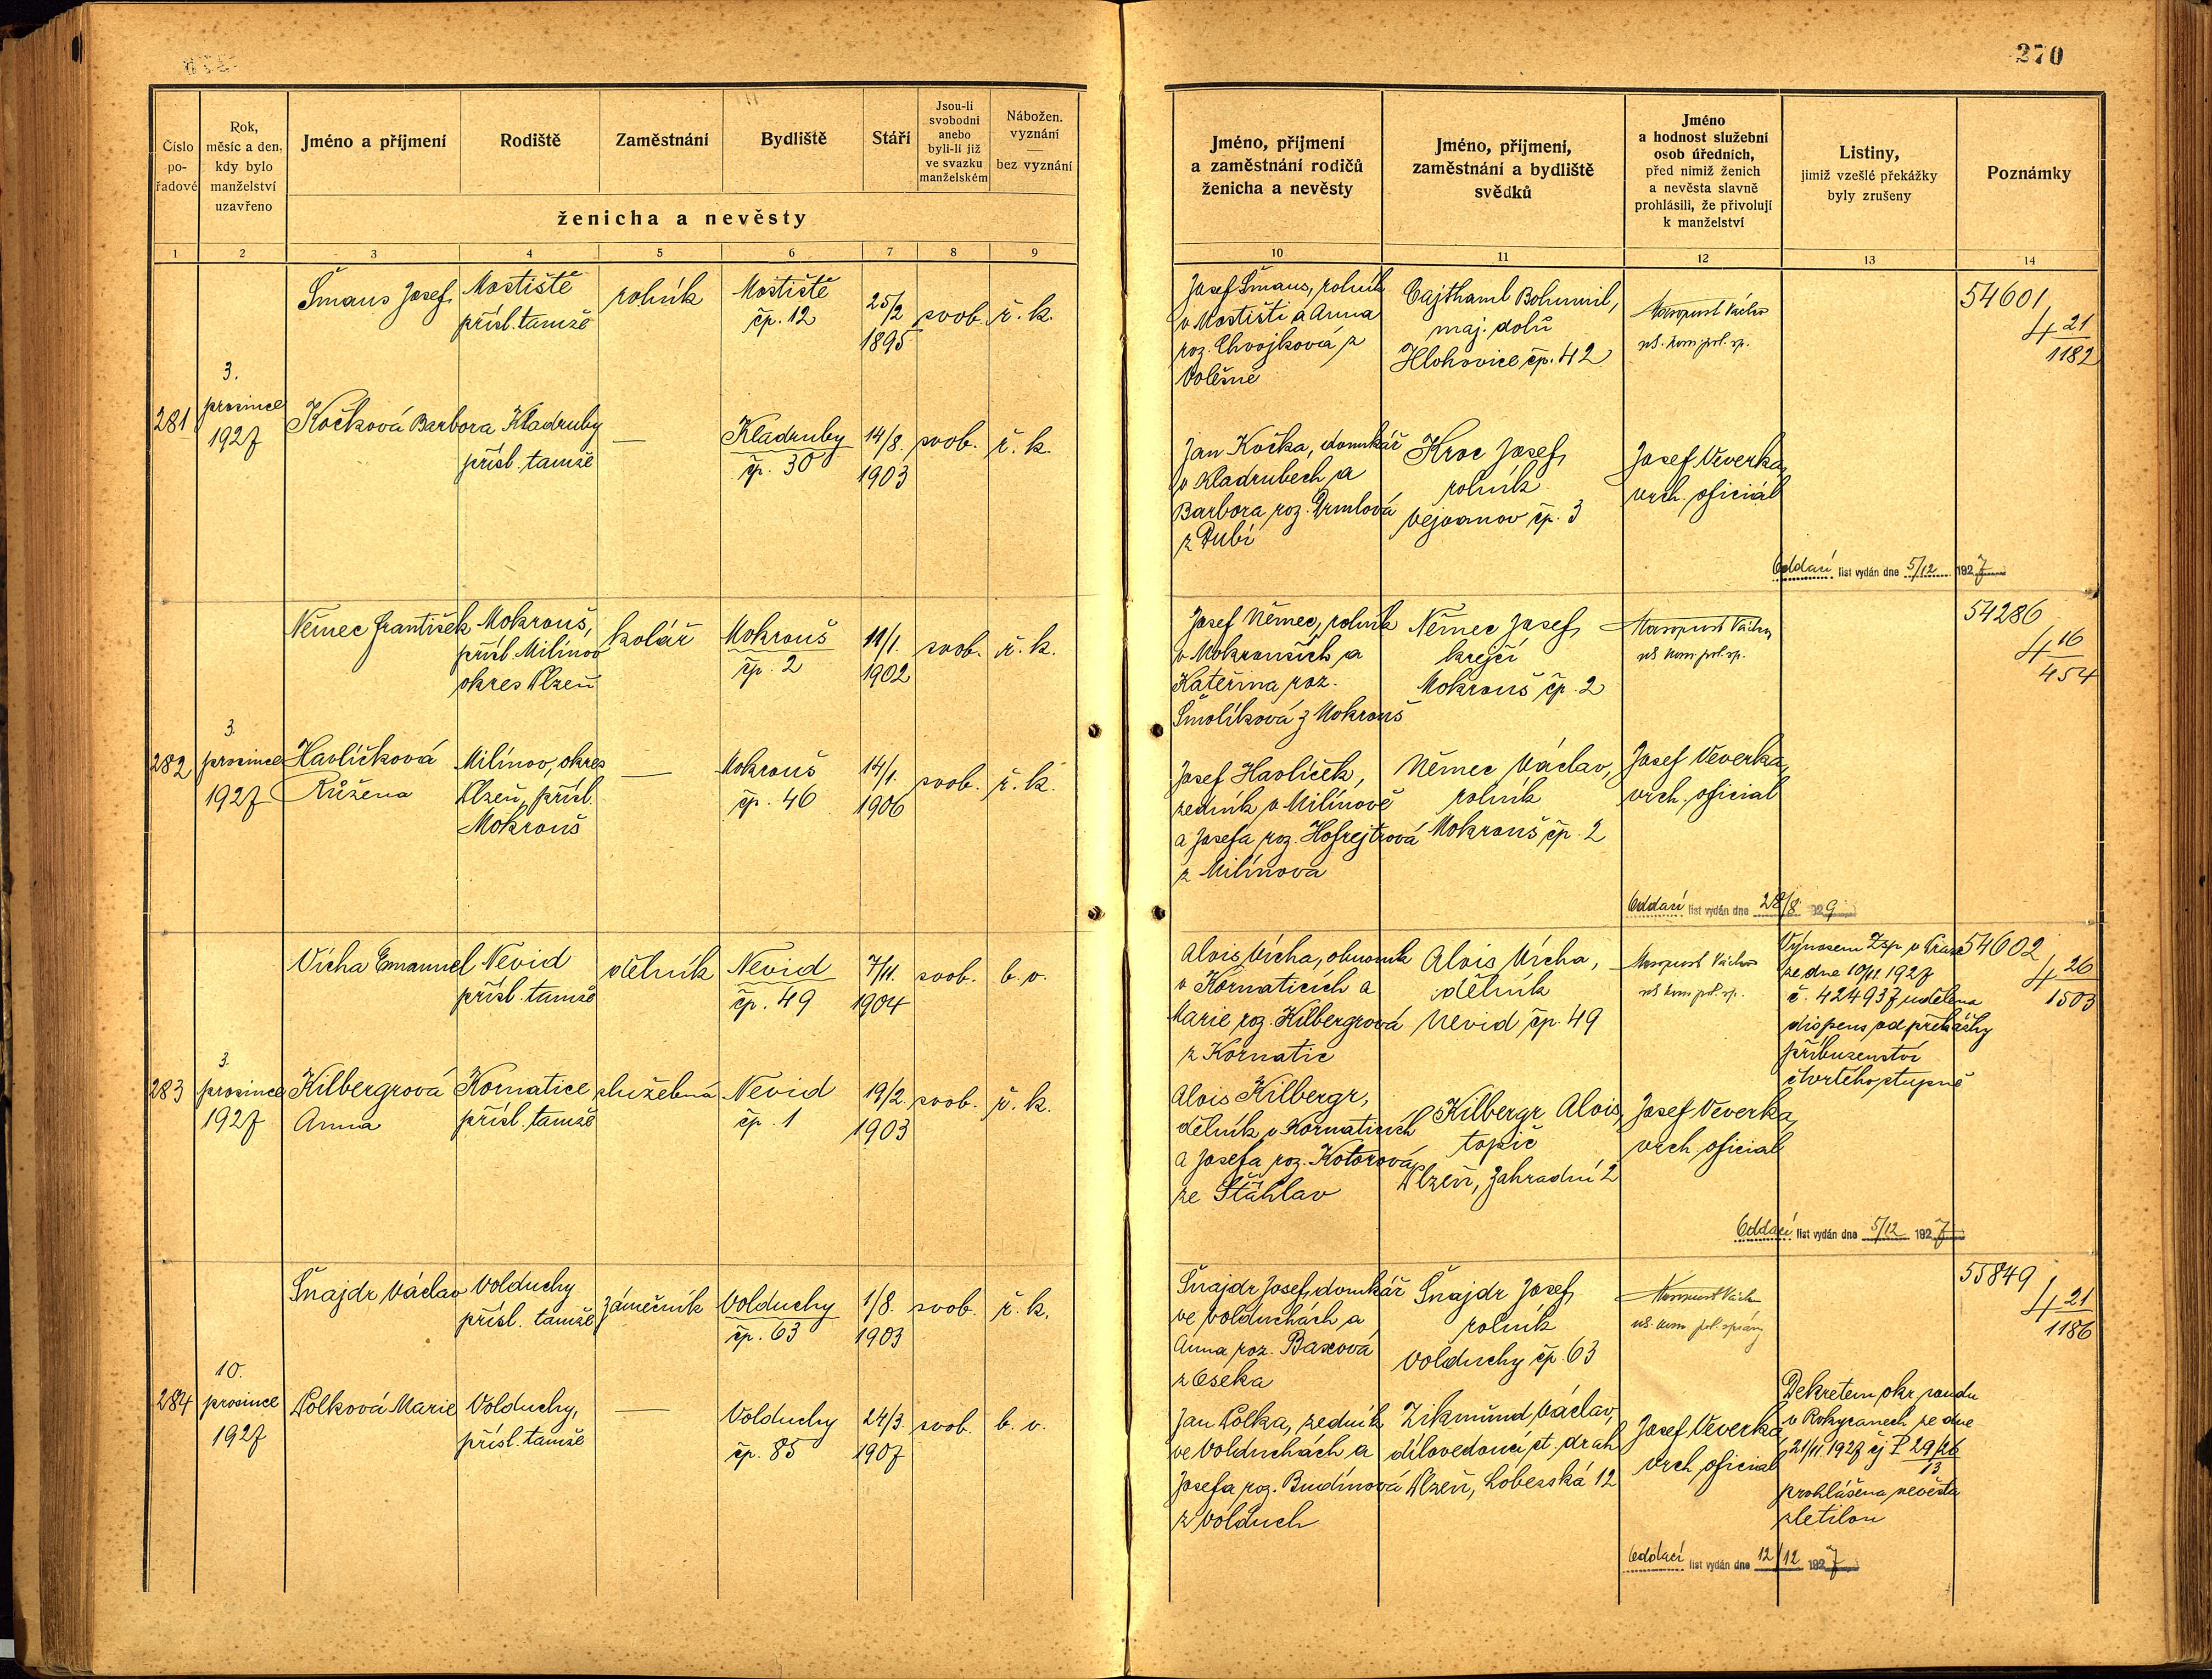 270
Číslo
po-
řadové
Rok,
měsíc a den,
kdy bylo
manželství
uzavřeno
Jméno a příjmení
Rodiště
Zaměstnání
Bydliště
Stáří
Jsou-li
svobodni
anebo
byli-li již
ve svazku
manželském
Nábožen.
vyznání
—
bez vyznání
ženicha a nevěsty
Jméno, příjmení
a zaměstnání rodičů
ženicha a nevěsty
Jméno, příjmení,
zaměstnání a bydliště
svědků
Jméno
a hodnost služební
osob úředních,
před nimiž ženich
a nevěsta slavně
prohlásili, že přivolují
k manželství
Listiny,
jimiž vzešlé překážky
byly zrušeny
Poznámky
1 2 3 4 5 6 7 8 9 10 11 12 13 14
281
3.
prosince
1927
Šmaus Josef
Mostiště
přísl. tamže
rolník
Mostiště
čp. 12
25/2
1895
svob.
ř. k.
Josef Šmaus, rolník
v Mostišti a Anna
roz. Chvojková z
Volešné
Cajthaml Bohumil,
maj. dolů
Hlohovice čp. 42
Masopust Václav
54601
4 21
1182
Kočková Barbora
Kladruby
přísl. tamže
—
Kladruby
čp. 30
14/8.
1903
svob.
ř. k.
Jan Kočka, domkář
v Kladrubech a
Barbora roz. Drmlová
z Dubí
Kroc Josef,
rolník
Vejvanov čp. 3
Josef Veverka,
vrch. oficiál
Oddací list vydán dne 5/12 1927
282
3.
prosince
1927
Němec František
Mokrouš,
přísl. Milínov
okres Plzeň
kolář
Mokrouš
čp. 2
11/1.
1902
svob.
ř. k.
Josef Němec, rolník
v Mokrouších a
Kateřina roz.
Šmolíková z Mokrouš
Němec Josef,
krejčí
Mokrouš čp. 2
Masopust Václav
54286
4 16
454
Havlíčková
Růžena
Milínov, okres
Plzeň, přísl.
Mokrouš
—
Mokrouš
čp. 46
14/1.
1906
svob.
ř. k.
Josef Havlíček,
zedník v Milínově
a Josefa roz. Hofrejtrová
z Milínova
Němec Václav,
rolník
Mokrouš čp. 2
Josef Veverka,
vrch. oficial
Oddací list vydán dne 28/8 1929
283
3.
prosince
1927
Vícha Emanuel
Nevid
přísl. tamže
dělník
Nevid
čp. 49
7/11.
1904
svob.
b. v.
Alois Vícha, obuvník
v Kornaticích a
Marie roz. Kilbergrová
z Kornatic
Alois Vícha,
dělník
Nevid čp. 49
Masopust Václav
Výnosem Zsp. v Praze
ze dne 10/11 1927
č. 424937 udělena
dispens od překážky
příbuzenství
čtvrtého stupně
54602
4 26
1503
Kilbergrová
Anna
Kornatice
přísl. tamže
služebná
Nevid
čp. 1
19/2.
1903
svob.
ř. k.
Alois Kilbergr,
dělník v Kornaticích
a Josefa roz. Kotorová
ze Šťáhlav
Kilbergr Alois,
topič
Plzeň, Zahradní 2
Josef Veverka,
vrch. oficial
Oddací list vydán dne 5/12 1927
284
10.
prosince
1927
Šnajdr Václav
Volduchy
přísl. tamže
zámečník
Volduchy
čp. 63
1/8.
1903
svob.
ř. k.
Šnajdr Josef, domkář
ve Volduchách a
Anna roz. Baxová
z Oseka
Šnajdr Josef,
rolník
Volduchy čp. 63
Masopust Václav
55849
4 21
1186
Polková Marie
Volduchy,
přísl. tamže
—
Volduchy
čp. 85
24/3.
1907
svob.
b. v.
Jan Polka, zedník
ve Volduchách a
Josefa roz. Budínová
z Volduch
Zikmund Václav,
dílovedoucí st. drah
Plzeň, Lobezská 12
Josef Veverka
vrch. oficial
Dekretem okr. soudu
v Rokycanech ze dne
21/11 1927 čj P 29/26
13
prohlášena nevěsta
zletilou
Oddací list vydán dne 12/12 1927